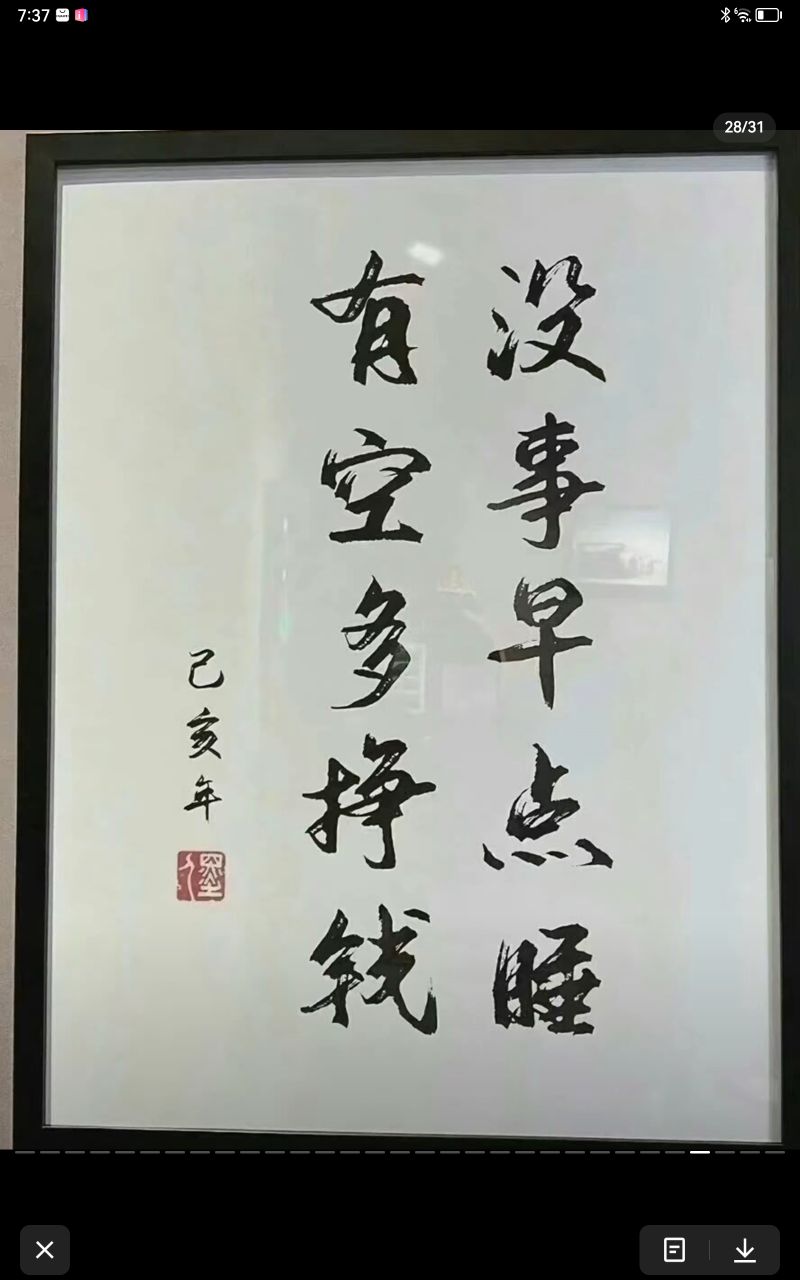 7:37
28/31
没事早点睡
有空多挣钱
己亥年